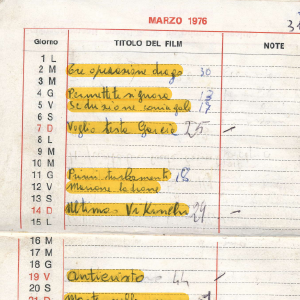 MARZO 1976
Giorno TITOLO DEL FILM NOTE
1 L
2 M Tre operazione drago 30
3 M
4 G Permettete signora 13
5 V Seduzione coniugale 13
6 S
7 D Voglio testa Garcia 25
8 L
9 M
10 M
11 G Primi turbamenti 18
12 V Marrone
13 S
14 D Ultimo 29
15 L
16 M
17 M
18 G
19 V Anticristo 44
20 S
21 D